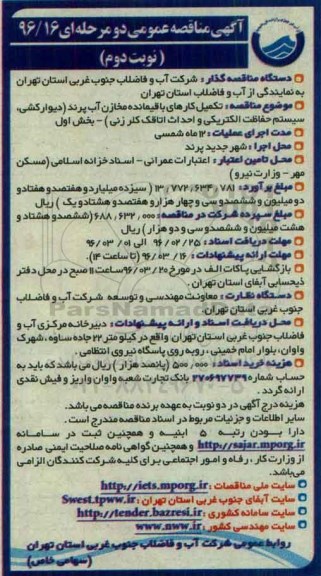 آگهی مناقصه عمومی دو مرحله‌ای ۹۶/۱۶
(نوبت دوم)
دستگاه مناقصه گذار : شرکت آب و فاضلاب جنوب غربی استان تهران
به نمایندگی از آب و فاضلاب استان تهران
موضوع مناقصه : تکمیل کارهای باقیمانده مخازن آب پرند (دیوارکشی،
سیستم حفاظت الکتریکی و احداث اتاقک کلر زنی) - بخش اول
مدت اجرای عملیات : ۱۲ ماه شمسی
محل اجرا : شهر جدید پرند
محل تامین اعتبار : اعتبارات عمرانی - اسناد خزانه اسلامی (مسکن
مهر - وزارت نیرو)
مبلغ برآورد : ۱۳,۷۷۲,۶۳۴,۷۸۱ (سیزده میلیارد و هفتصد و هفتاد و
دو میلیون و ششصد و سی و چهار هزار و هفتصد و هشتاد و یک) ریال
مبلغ سپرده شرکت در مناقصه : ۶۸۸,۶۳۲,۰۰۰ (ششصد و هشتاد و
هشت میلیون و ششصد و سی و دو هزار) ریال
مهلت دریافت اسناد : ۹۶/۰۲/۲۵ الی ۹۶/۰۳/۰۱
مهلت ارائه پیشنهادات : ۹۶/۰۳/۱۶ (تا ساعت ۱۴)
بازگشایی پاکات الف در مورخ ۹۶/۰۳/۲۰ ساعت ۱۱ صبح در محل دفتر
ذیحسابی آبفای استان تهران.
دستگاه نظارت : معاونت مهندسی و توسعه شرکت آب و فاضلاب
جنوب غربی استان تهران
محل دریافت اسناد و ارائه پیشنهادات : دبیرخانه مرکزی آب و
فاضلاب جنوب غربی استان تهران واقع در کیلومتر ۲۲ جاده ساوه، شهرک
واوان، بلوار امام خمینی، روبه روی پاسگاه نیروی انتظامی.
هزینه خرید اسناد : ۵۰۰,۰۰۰ (پانصد هزار) ریال می باشد که باید به
حساب شماره ۲۷۰۶۹۷۷۴۹ بانک تجارت شعبه واوان واریز و فیش نقدی
ارائه گردد.
هزینه درج آگهی در دو نوبت به عهده برنده مناقصه می باشد.
سایر اطلاعات و جزئیات مربوط در اسناد مناقصه مندرج است.
دارا بودن رتبه ۵ ابنیه و همچنین ثبت در سامانه
http://sajar.mporg.ir و همچنین گواهی نامه صلاحیت ایمنی صادره
از وزارت کار، رفاه و امور اجتماعی برای کلیه شرکت کنندگان الزامی
می باشد.
سایت ملی مناقصات : http://iets.mporg.ir
سایت آبفای جنوب غربی استان تهران : Swest.tpww.ir
سایت سامانه کشوری : http://tender.bazresi.ir
سایت مهندسی کشور : www.nww.ir
روابط عمومی شرکت آب و فاضلاب جنوب غربی استان تهران
(سهامی خاص)